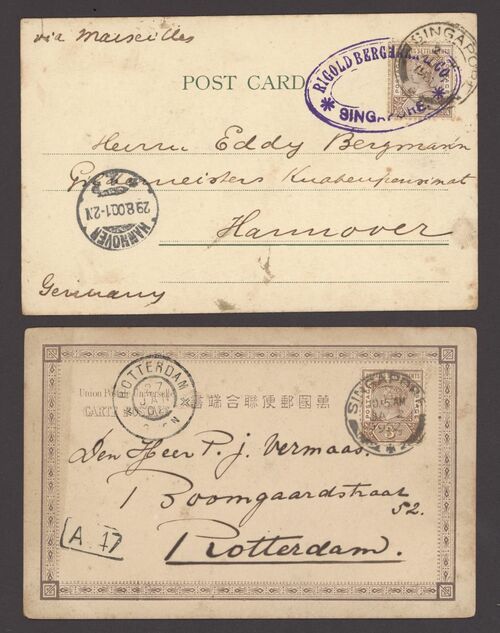 via Marseilles
SINGAPORE
POST CARD
RIGOLD BERGMANN & CO.
SINGAPORE
Herrn Eddy Bergmann
Knabenpensionat
HANNOVER
29.8.00.1-2.N
Hannover
Germany
ROTTERDAM
27
JA
Union Postale Universelle
CARTE POSTALE
書誌合聯便郵國萬
SINGAPORE
POSTAGE
Den Heer P. J. Vermaas.
Boomgaardstraat
52.
A. 17
Rotterdam.